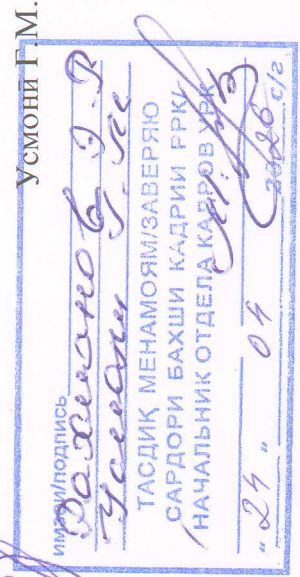 Усмони Г.М.
имзои/подпись
Рахимов
Усмони Г.М.
ТАСДИҚ МЕНАМОЯМ/ЗАВЕРЯЮ
САРДОРИ БАХШИ КАДРИИ РРК/
НАЧАЛЬНИК ОТДЕЛА КАДРОВ УРК
"24" 04 2026 с/г